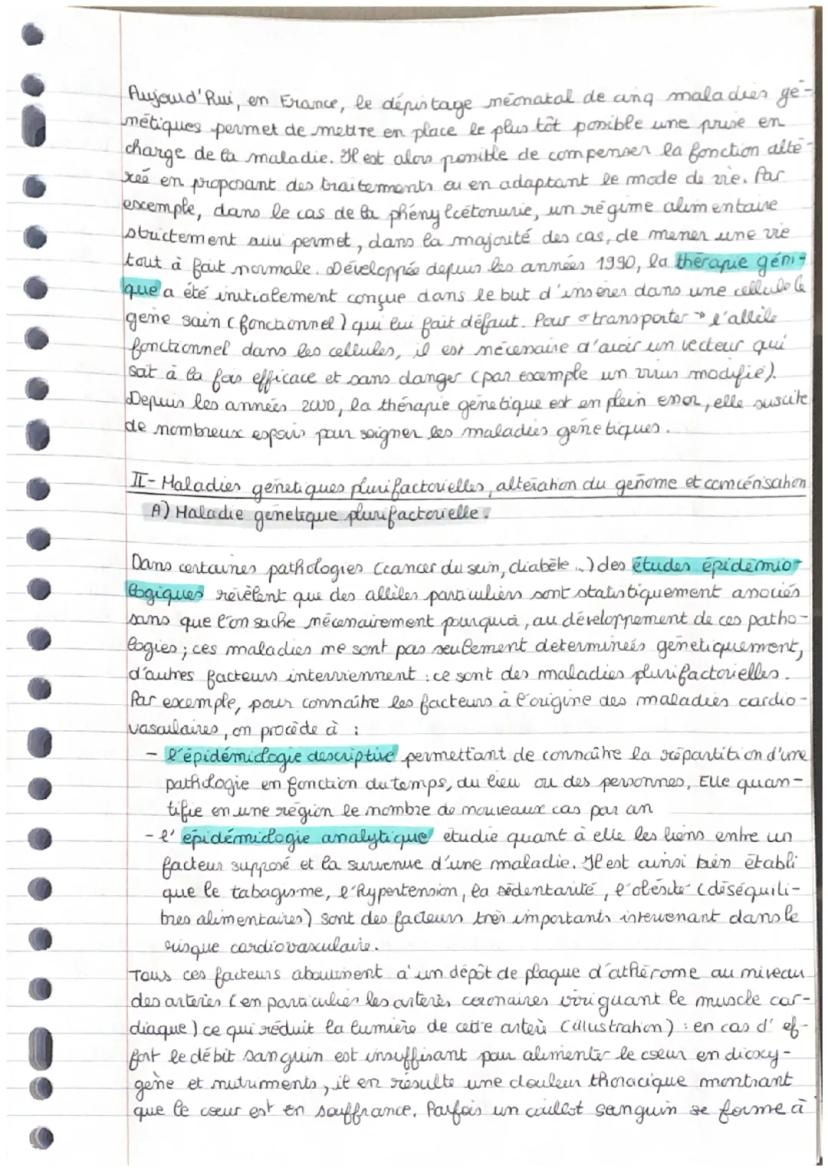 Aujourd'hui, en France, le dépistage néonatal de cinq maladies gé-
nétiques permet de mettre en place le plus tôt possible une prise en
charge de la maladie. Il est alors possible de compenser la fonction alté-
rée en proposant des traitements ou en adaptant le mode de vie. Par
exemple, dans le cas de la phénylcétonurie, un régime alimentaire
strictement suivi permet, dans la majorité des cas, de mener une vie
tout à fait normale. Développée depuis les années 1990, la thérapie géni-
que a été initialement conçue dans le but d'insérer dans une cellule le
gène sain (fonctionnel) qui lui fait défaut. Pour « transporter » l'allèle
fonctionnel dans les cellules, il est nécessaire d'avoir un vecteur qui
soit à la fois efficace et sans danger (par exemple un virus modifié).
Depuis les années 2000, la thérapie génétique est en plein essor, elle suscite
de nombreux espoirs pour soigner les maladies génétiques.
II- Maladies génétiques plurifactorielles, altération du génome et cancérisation
A) Maladie génétique plurifactorielle.
Dans certaines pathologies (cancer du sein, diabète...) des études épidémio-
logiques révèlent que des allèles particuliers sont statistiquement associés
sans que l'on sache nécessairement pourquoi, au développement de ces patho-
logies ; ces maladies ne sont pas seulement déterminées génétiquement,
d'autres facteurs interviennent : ce sont des maladies plurifactorielles.
Par exemple, pour connaître les facteurs à l'origine des maladies cardio-
vasculaires, on procède à :
- l'épidémiologie descriptive permettant de connaître la répartition d'une
pathologie en fonction du temps, du lieu ou des personnes. Elle quan-
tifie en une région le nombre de nouveaux cas par an
- l'épidémiologie analytique étudie quant à elle les liens entre un
facteur supposé et la survenue d'une maladie. Il est ainsi bien établi
que le tabagisme, l'hypertension, la sédentarité, l'obésité (déséquili-
bres alimentaires) sont des facteurs très importants intervenant dans le
risque cardiovasculaire.
Tous ces facteurs aboutissent à un dépôt de plaque d'athérome au niveau
des artères (en particulier les artères coronaires irriguant le muscle car-
diaque) ce qui réduit la lumière de cette artère (illustration) : en cas d'ef-
fort le débit sanguin est insuffisant pour alimenter le cœur en dioxy-
gène et nutriments, il en résulte une douleur thoracique montrant
que le cœur est en souffrance. Parfois un caillot sanguin se forme à